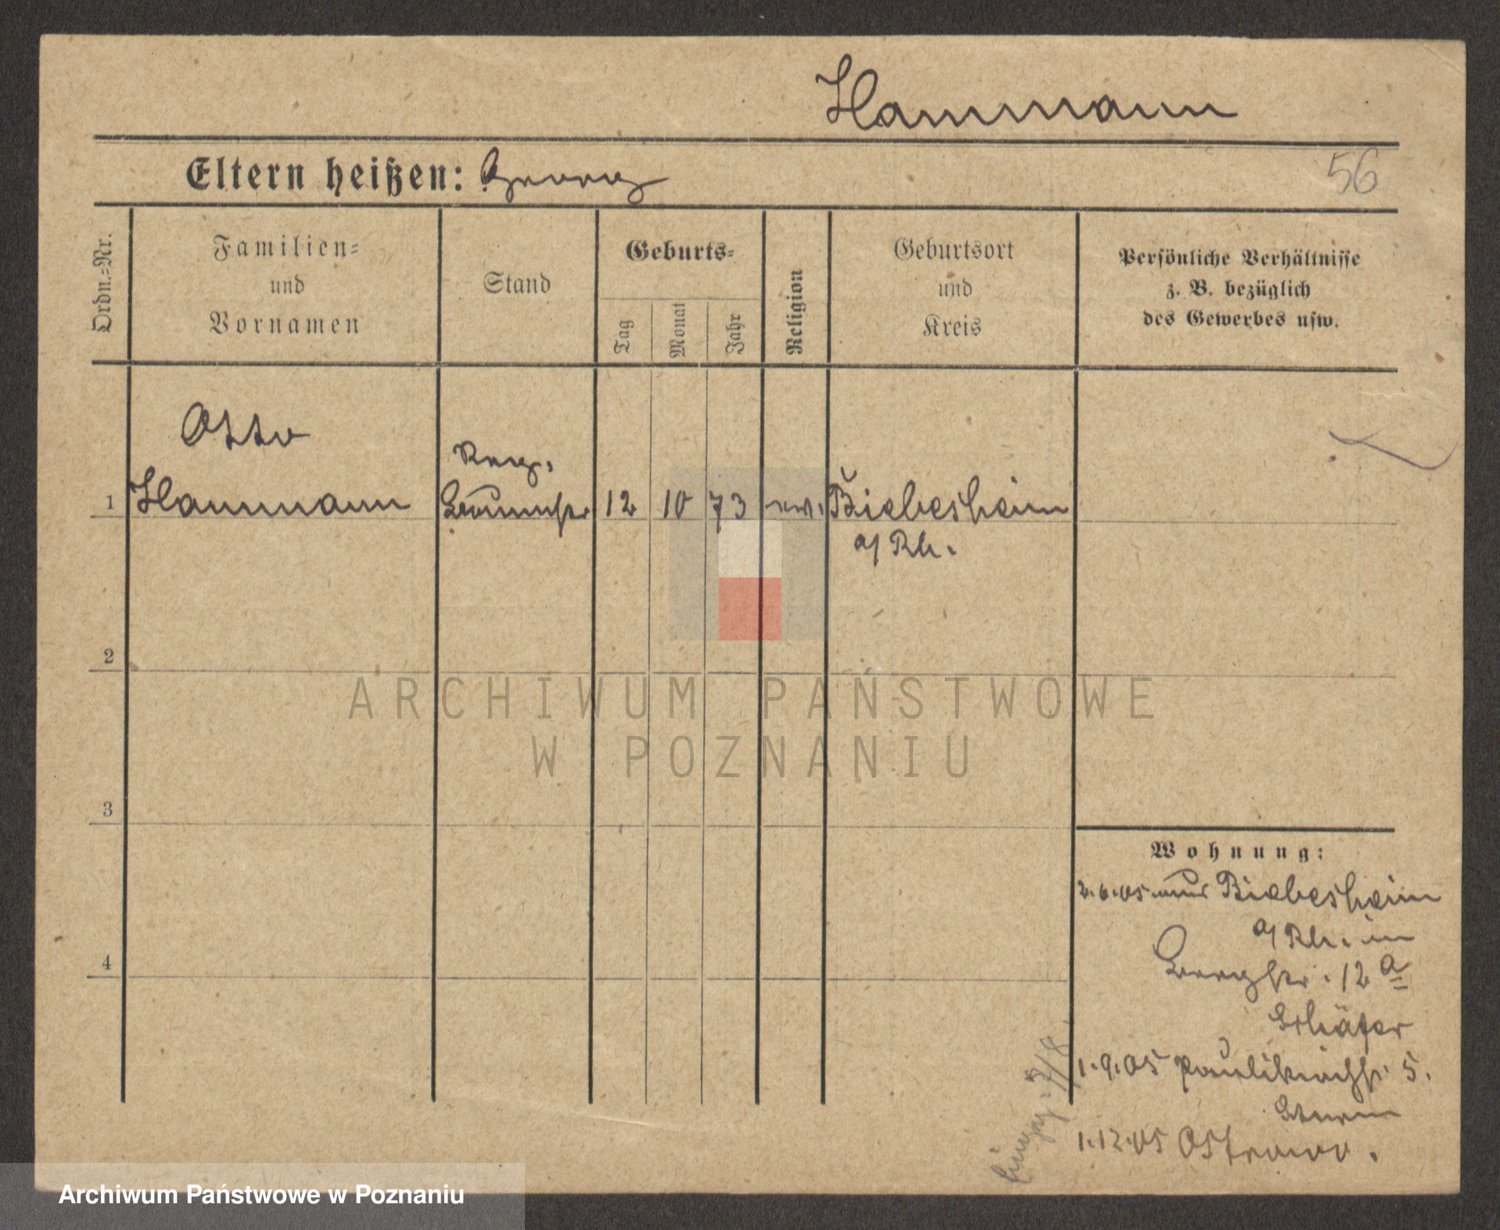 Hammann
Eltern heißen: Georg
56
Ordn.-Nr.
Familien-
und
Vornamen
Stand
Geburts-
Tag
Monat
Jahr
Religion
Geburtsort
und
Kreis
Persönliche Verhältnisse
z. B. bezüglich
des Gewerbes usw.
Otto
Reg.
1 Hammann Baumstr 12 10 73 ev. Biebesheim
a/ Rh.
2
ARCHIWUM PAŃSTWOWE
W POZNANIU
3
Wohnung:
2.6.05 aus Biebesheim
a/ Rh. in
Bergstr. 12 a
Schäfer
4
1.9.05 Paulikirchstr. 5.
Sturm
1.12.05 Ostrowo.
Archiwum Państwowe w Poznaniu